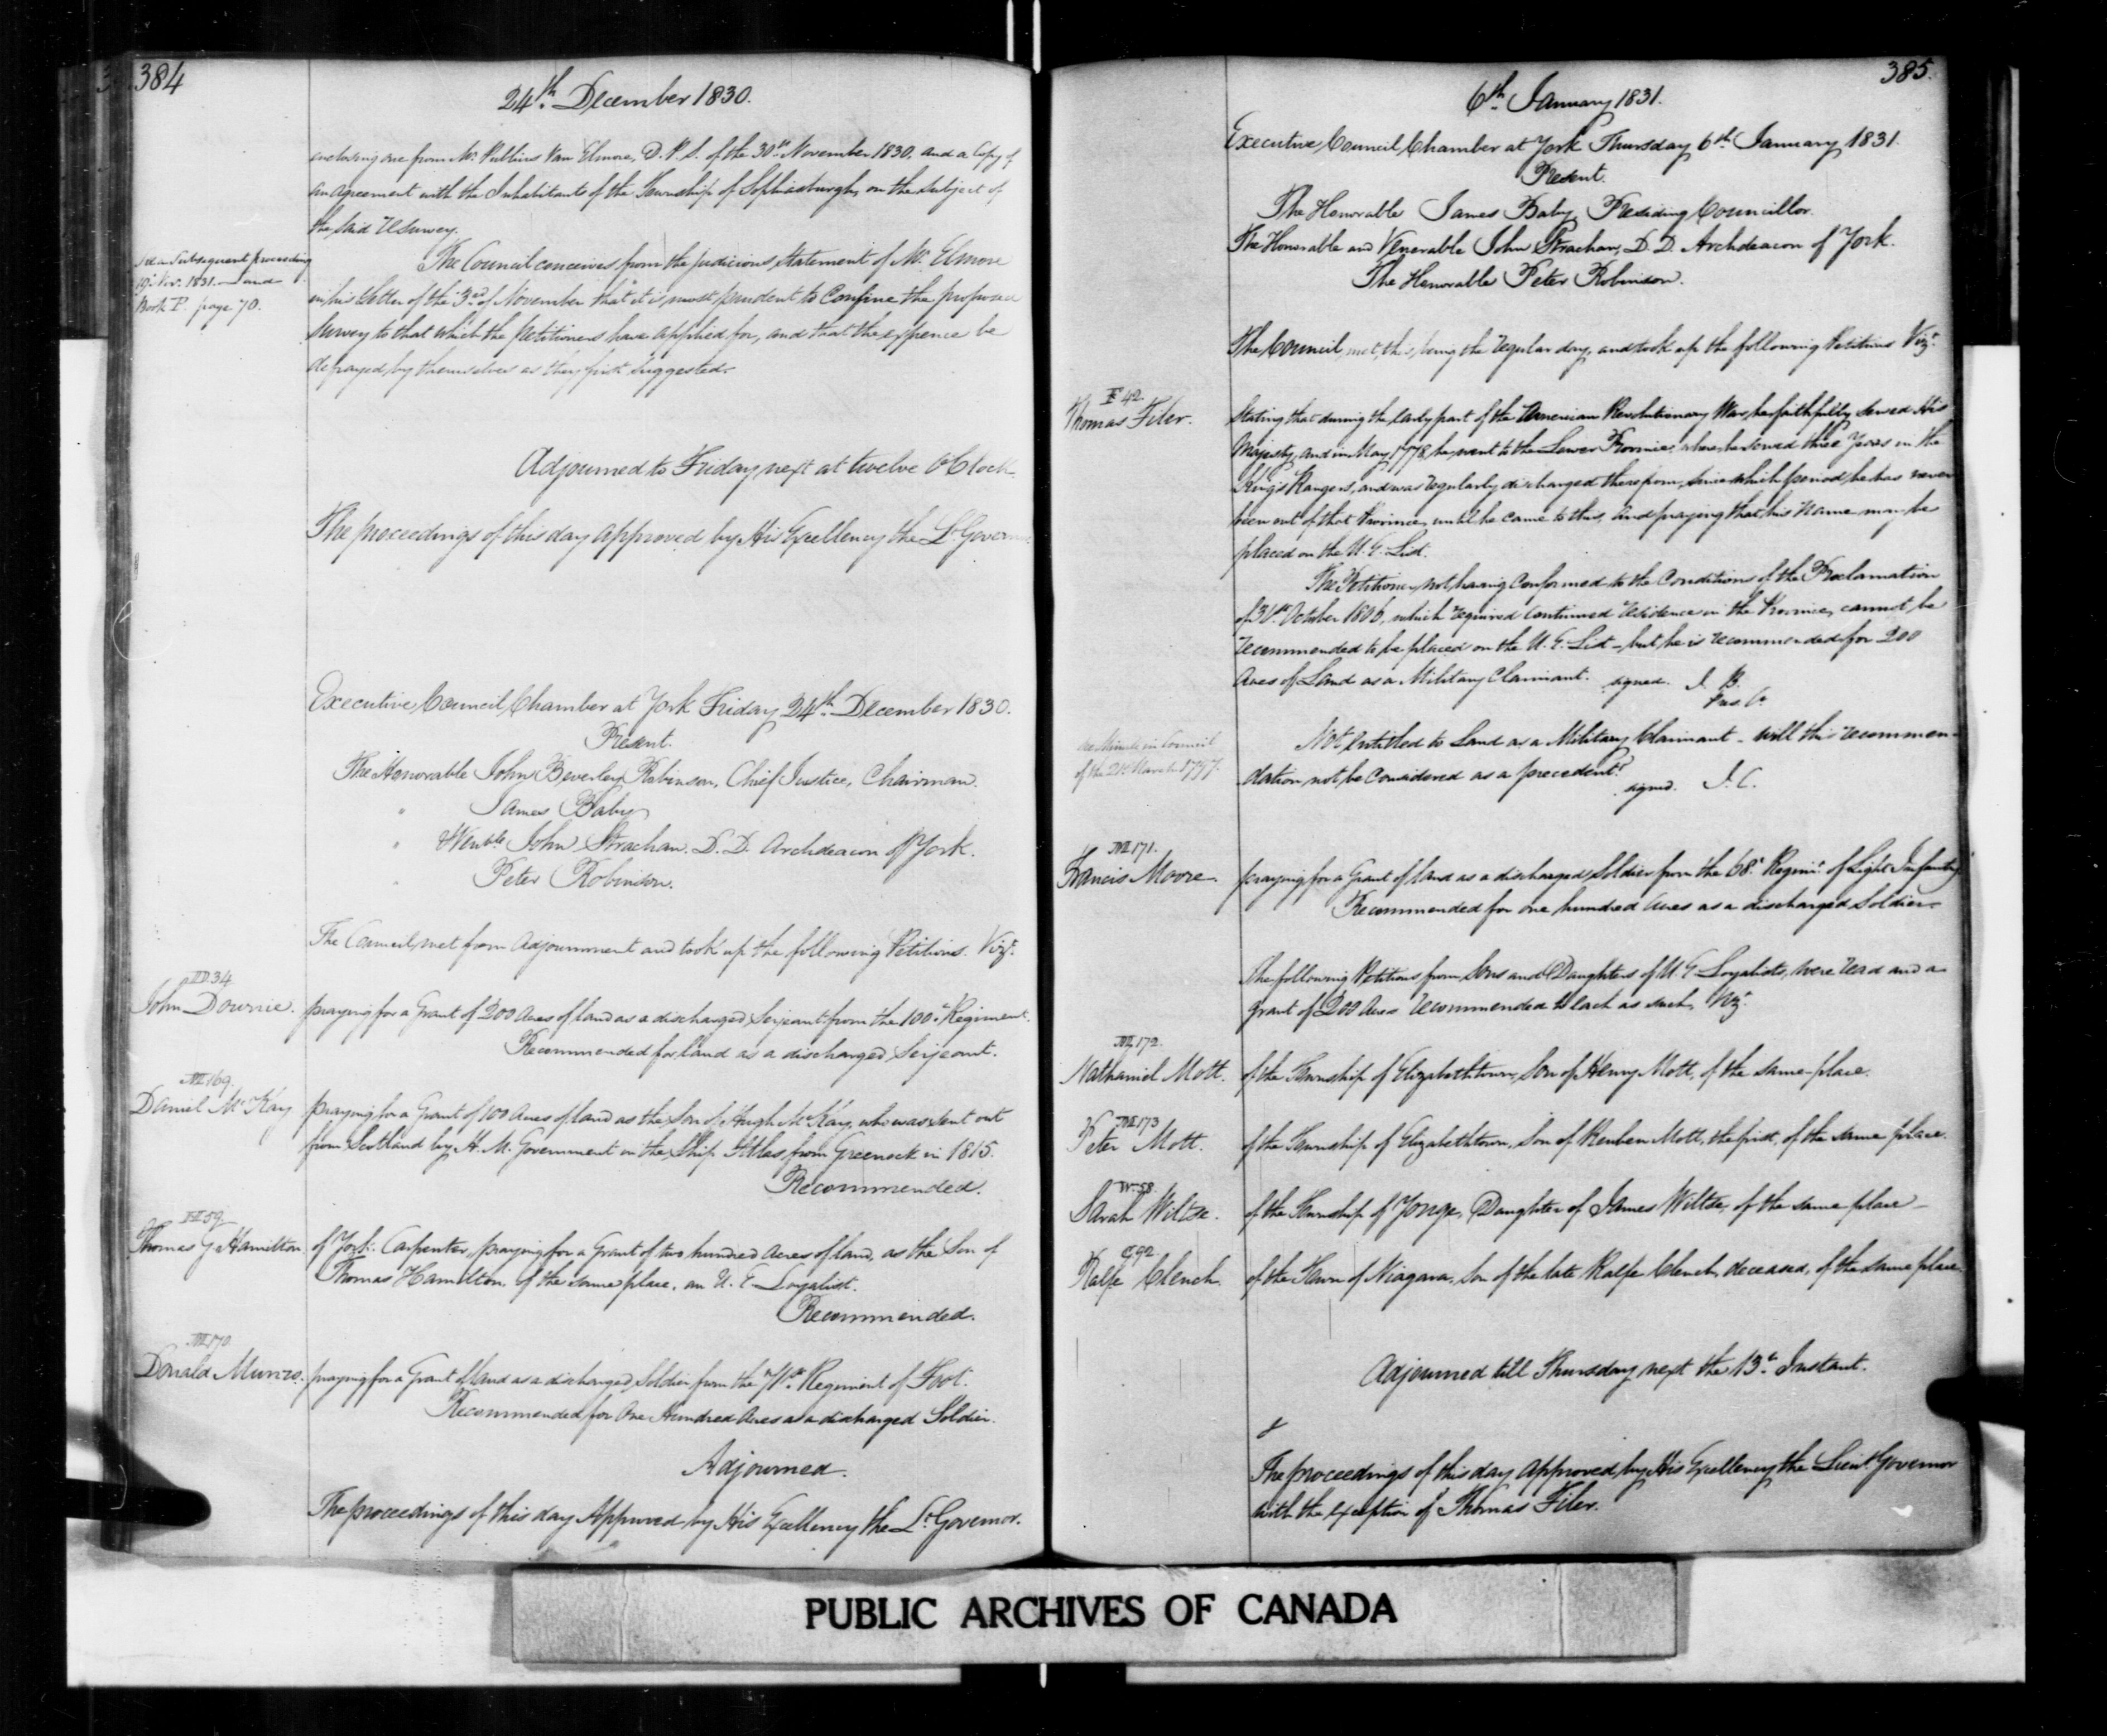 384
24th December 1830.
enclosing one from Mr. Publius Van Elmore, D. P. S. of the 30th November 1830. and a Copy of
an agreement with the Inhabitants of the Township of Sophiasburgh, on the subject of
the said resurvey.
See a Subsequent proceeding
19 Nov. 1831. Land
Book P. page 70.
The Council conceives from the judicious statement of Mr. Elmore
in his Letter of the 3rd of November that it is most prudent to Confine the proposed
Survey to that which the Petitioners have applied for, and that the expence be
defrayed by themselves as they first suggested.
Adjourned to Friday next at twelve O'Clock
The proceedings of this day approved by His Excellency the Lt. Governor.
Executive Council Chamber at York Friday 24th December 1830.
Present.
The Honorable John Beverley Robinson, Chief Justice, Chairman.
" James Baby
" & Venble John Strachan. D. D. Archdeacon of York.
" Peter Robinson.
The Council met from Adjournment and took up the following Petitions. Vizt.
D 34
John Downie. praying for a Grant of 200 Acres of land as a discharged Serjeant from the 100th Regiment.
Recommended for land as a discharged Serjeant.
M 169.
Daniel McKay praying for a Grant of 100 Acres of land as the Son of Hugh McKay, who was sent out
from Scotland by H. M. Government in the Ship Atlas from Greenock in 1815.
Recommended.
H 59
Thomas G. Hamilton of York. Carpenter, praying for a Grant of two hundred Acres of land, as the Son of
Thomas Hamilton of the same place. an U. E Loyalist.
Recommended.
M 170
Donald Munro. praying for a Grant of land as a discharged Soldier from the 71st Regiment of Foot.
Recommended for One Hundred Acres as a discharged Soldier.
Adjourned.
The proceedings of this day Approved by His Excellency the Lt. Governor.
385.
6th January 1831.
Executive Council Chamber at York Thursday 6th January 1831.
Present.
The Honorable James Baby, Presiding Councillor.
The Honorable and Venerable John Strachan, D. D. Archdeacon of York.
The Honorable Peter Robinson.
The Council met, this being the regular day, and took up the following Petitions Vizt.
F 42.
Thomas Filer. Stating that during the early part of the American Revolutionary War, he faithfully served His
Majesty, and in May 1778, he went to the Lower Province, where he served three Years in the
King's Rangers, and was regularly discharged therefrom, since which period he has never
been out of that Province, until he came to this, and praying that his Name may be
placed on the U. E. List.
The Petitioner not having Conformed to the Conditions of the Proclamation
of 31st October 1806, which required continued residence in the Province, cannot be
recommended to be placed on the U. E. List - but he is recommended for 200
Acres of Land as a Military Claimant. signed. J. B.
Pres. C.
See Minute in Council
of the 21st March 1797.
Not entitled to Land as a Military Claimant - Will this recommen-
dation not be Considered as a precedent?
signed. J. C.
M 171.
Francis Moore. praying for a Grant of land as a discharged Soldier from the 68th Regimt. of Light Infantry
Recommended for one hundred Acres as a discharged Soldier
The following Petitions from Sons and Daughters of U. E Loyalists, were read and a
grant of 200 Acres recommended to each as such, Vizt.
M 172.
Nathaniel Mott. of the Township of Elizabethtown, Son of Henry Mott, of the same place.
M 173
Peter Mott. of the Township of Elizabethtown, Son of Reuben Mott, the first, of the same place.
W 58.
Sarah Wiltse. of the Township of Yonge, Daughter of James Wiltse, of the same place
C 92.
Ralfe Clench. of the Town of Niagara, Son of the late Ralfe Clench, deceased, of the same place
Adjourned till Thursday next the 13th Instant.
The proceedings of this day Approved by His Excellency the Lieut. Governor
with the exception of Thomas Filer.
PUBLIC ARCHIVES OF CANADA